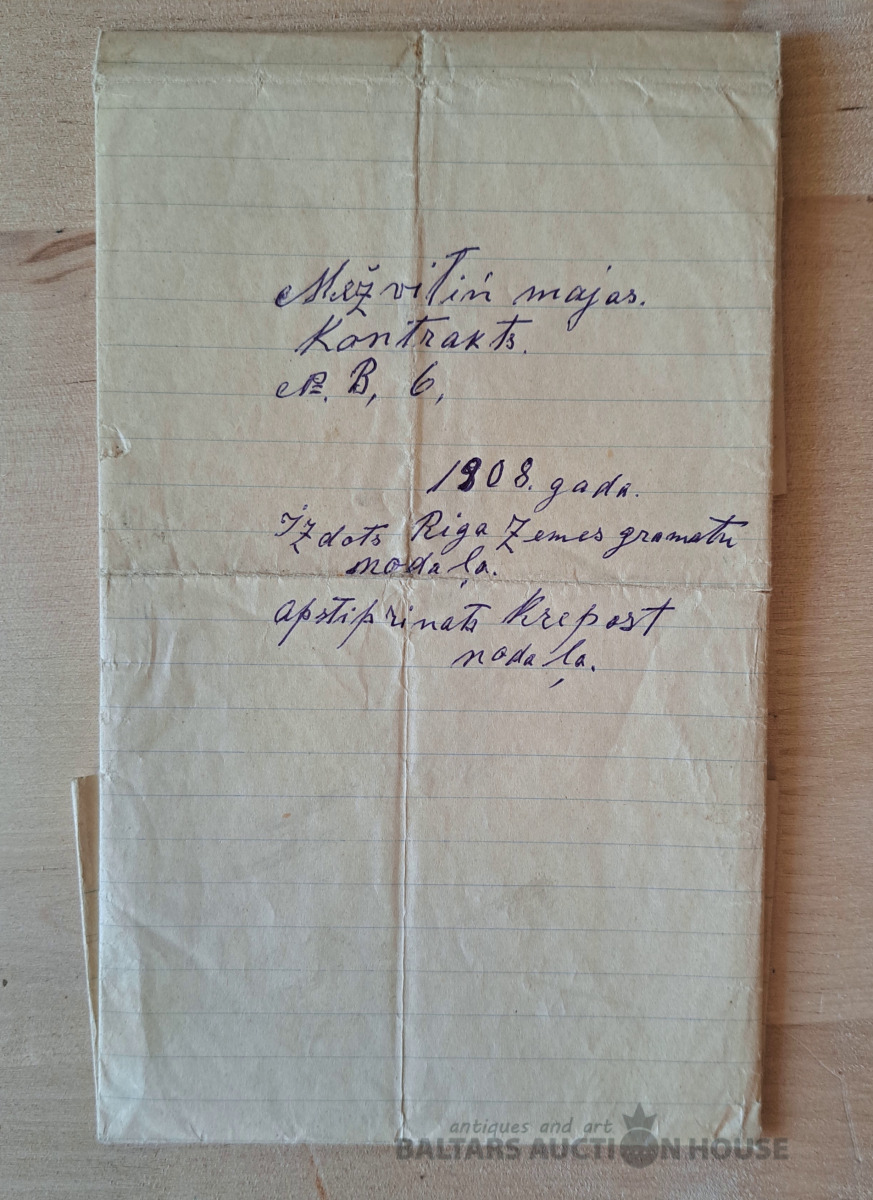 Mežvitiń majas.
Kontrakts.
№. B, 6,
1908. gada.
Izdots Riga Zemes gramatu
nodaļa.
apstiprinats Krepost
nodaļa.
antiques and art
BALTARS AUCTION HOUSE